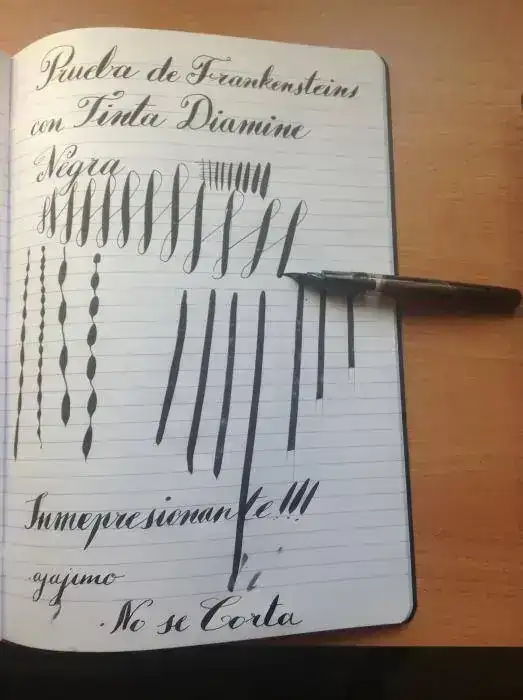 Prueba de Frankensteins
con Tinta Diamine
Negra
Inmepresionante!!!
gajimo
. No se Corta